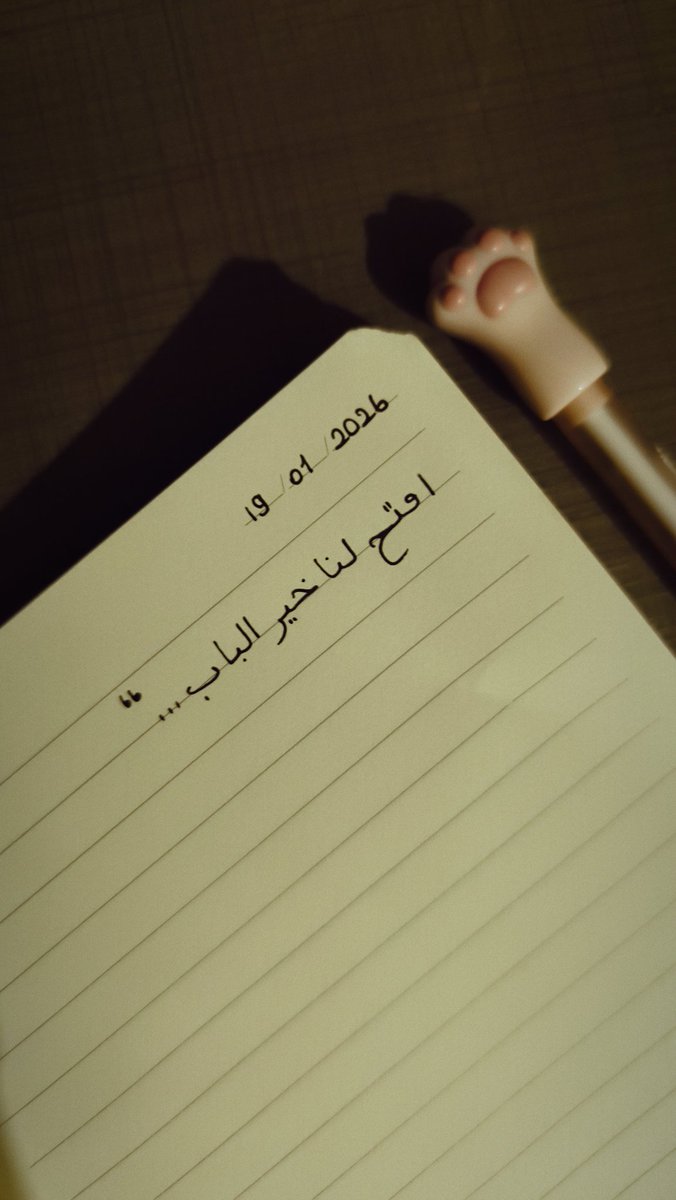 19/01/2026
افتح لنا خير الباب... "